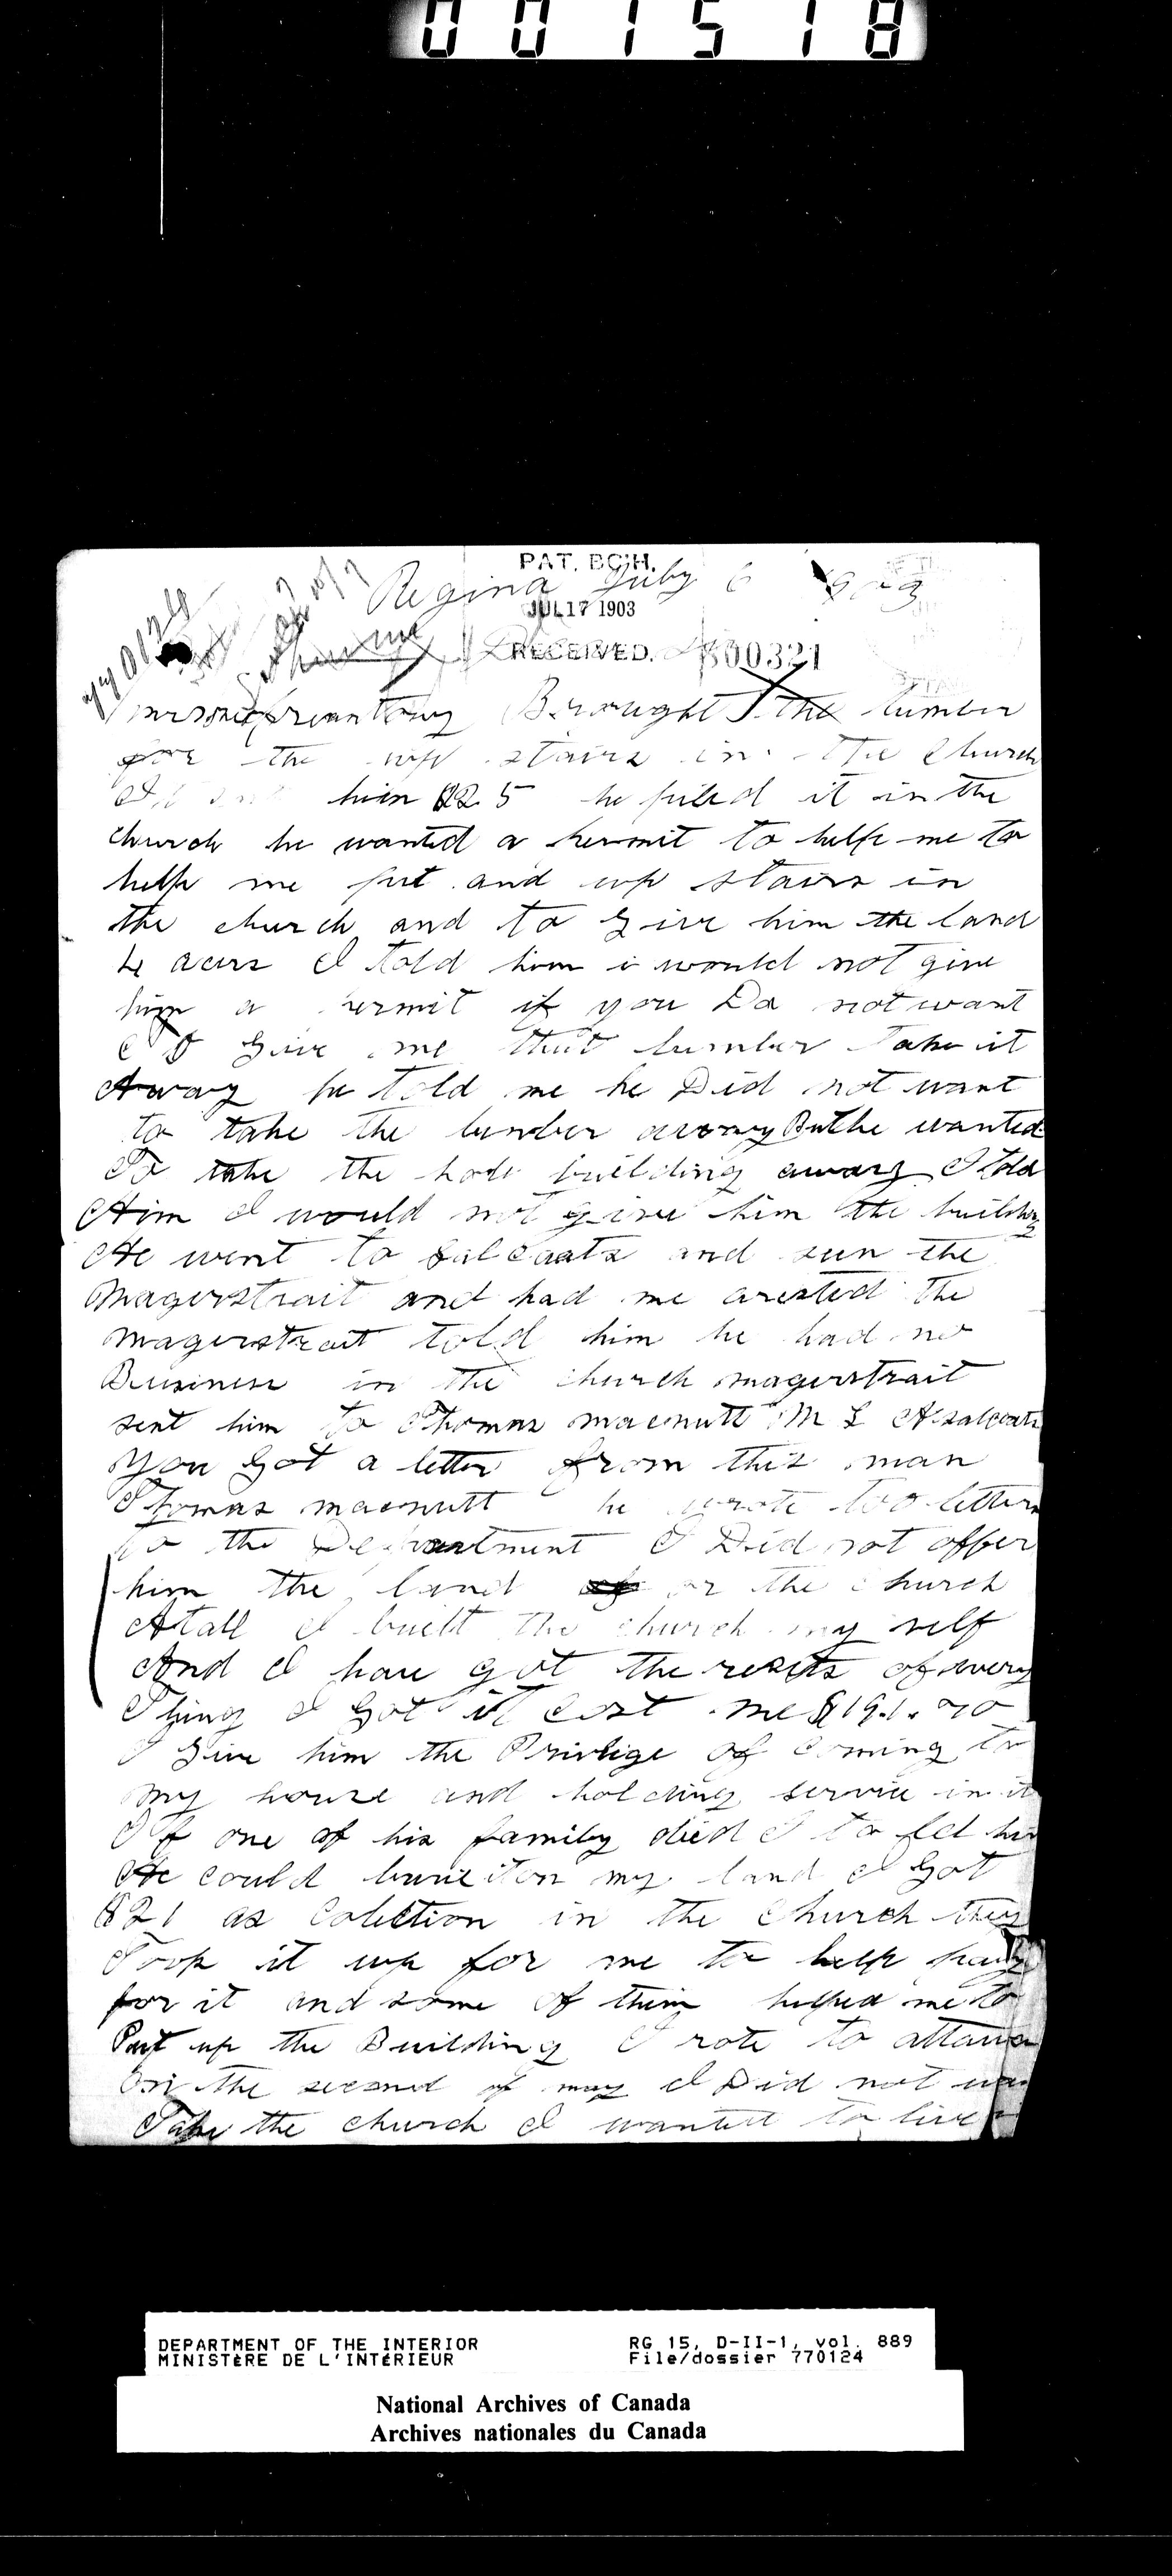 001518
PAT. BCH.
Regina July 6 1903
JUL 17 1903
RECEIVED.
800321
770124
Brought the lumber
for the upp stairs in the Church
him $25 he piled it in the
church he wanted a permit to help me to
help me put and up stairs in
the church and to give him the land
4 acurs I told him i would not give
him a permit if you Do not want
to Give me that lumber Take it
Away he told me he Did not want
to take the lumber away But he wanted
To take the hole building away I told
Him I would not give him the building
He went to Salcoats and seen the
Magerstrait and had me arested The
Magerstrait told him he had no
Business in the church magerstrait
sent him to Thomas macnutt M L A Salcoats
You Got a letter from this man
Thomas macnutt he wrote too letters
to the Department I Did not offer
him the land or the church
Atall I built the church my self
And I have got the reseits of every
Thing I Got it cost me $191.70
I Give him the Privlige of coming to
my house and holding service in it
If one of his family died I to
He could burie it on my land I Got
$21 as Colection in the Church they
Took it up for me to help pay
for it and some of them helped me to
Put up the Building I rote to attawa
On the second of may I Did not
Take the church I wanted to live
DEPARTMENT OF THE INTERIOR
MINISTÈRE DE L'INTÉRIEUR
RG 15, D-II-1, vol. 889
File/dossier 770124
National Archives of Canada
Archives nationales du Canada